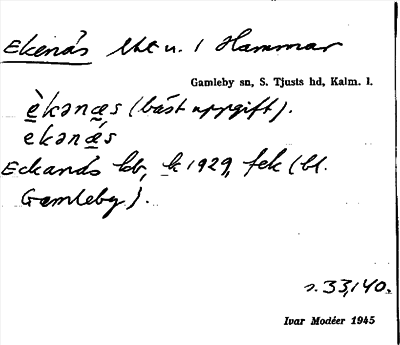 Ekenäs lht u. 1 Hammar
Gamleby sn, S. Tjusts hd, Kalm. l.
èkənæs (bäst uppgift).
ekənǽs
Eckanäs kb, k 1929, fek (bl.
Gamleby).
s. 33,140.
Ivar Modéer 1945